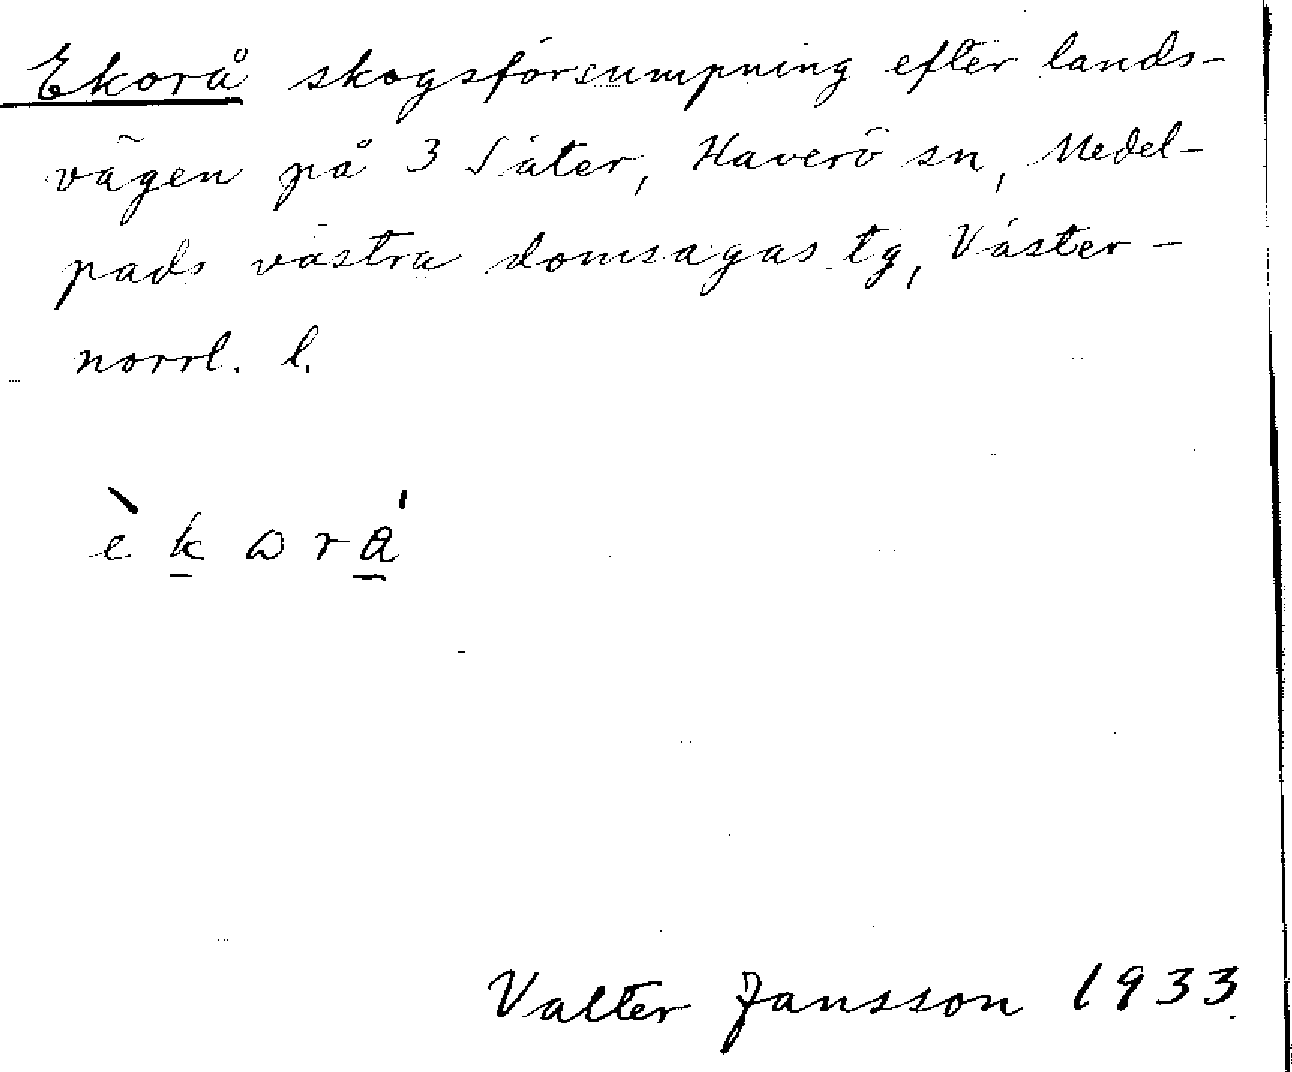 Ekorå skogsförsumpning efter lands-
vägen på 3 Säter, Haverö sn, Medel-
pads västra domsagas tg, Väster-
norrl. l.
Valter Jansson 1933.